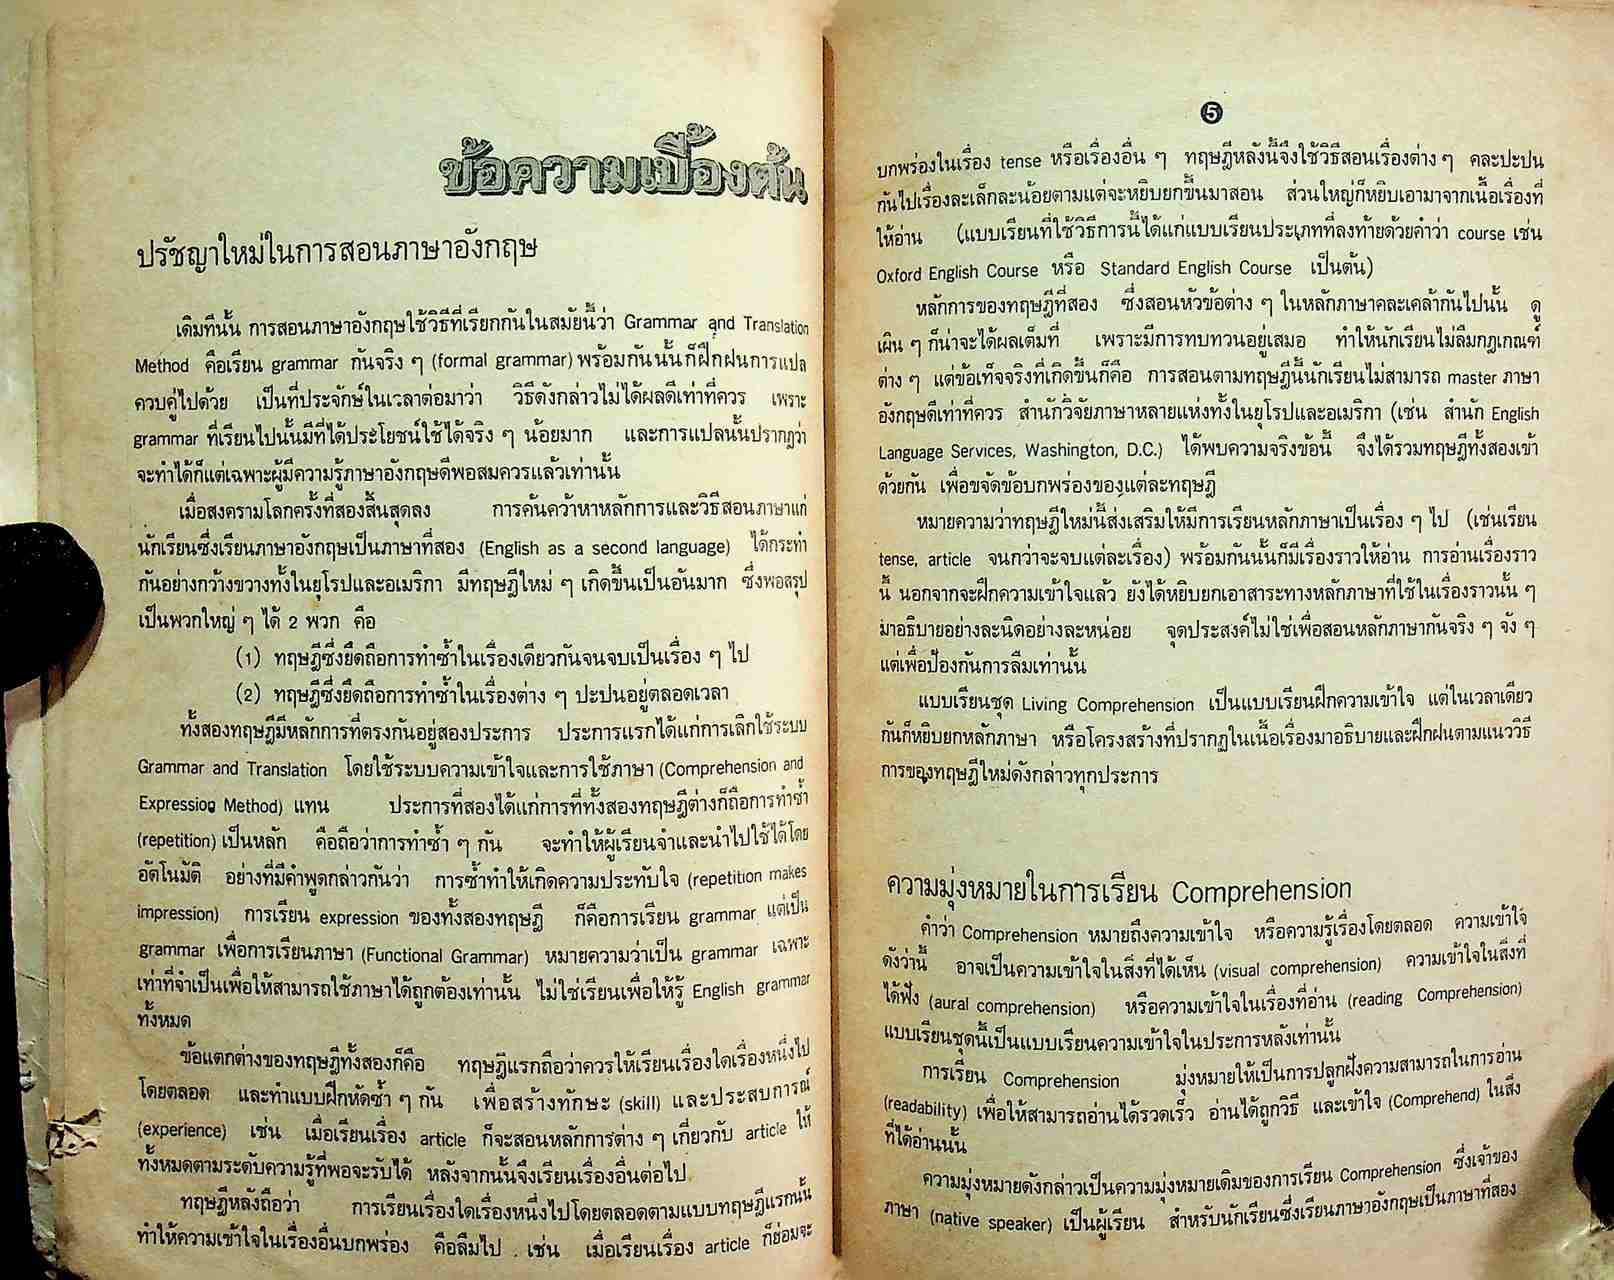 ข้อความเบื้องต้น
ปรัชญาใหม่ในการสอนภาษาอังกฤษ
เดิมทีนั้น การสอนภาษาอังกฤษใช้วิธีที่เรียกกันในสมัยนี้ว่า Grammar and Translation
Method คือเรียน grammar กันจริง ๆ (formal grammar) พร้อมกันนั้นก็ฝึกฝนการแปล
ควบคู่ไปด้วย เป็นที่ประจักษ์ในเวลาต่อมาว่า วิธีดังกล่าวไม่ได้ผลดีเท่าที่ควร เพราะ
grammar ที่เรียนไปนั้นมีที่ได้ประโยชน์ใช้ได้จริง ๆ น้อยมาก และการแปลนั้นปรากฏว่า
จะทำได้ก็แต่เฉพาะผู้มีความรู้ภาษาอังกฤษดีพอสมควรแล้วเท่านั้น
เมื่อสงครามโลกครั้งที่สองสิ้นสุดลง การค้นคว้าหาหลักการและวิธีสอนภาษาแก่
นักเรียนซึ่งเรียนภาษาอังกฤษเป็นภาษาที่สอง (English as a second language) ได้กระทำ
กันอย่างกว้างขวางทั้งในยุโรปและอเมริกา มีทฤษฎีใหม่ ๆ เกิดขึ้นเป็นอันมาก ซึ่งพอสรุป
เป็นพวกใหญ่ ๆ ได้ 2 พวก คือ
(1) ทฤษฎีซึ่งยึดถือการทำซ้ำในเรื่องเดียวกันจนจบเป็นเรื่อง ๆ ไป
(2) ทฤษฎีซึ่งยึดถือการทำซ้ำในเรื่องต่าง ๆ ปะปนอยู่ตลอดเวลา
ทั้งสองทฤษฎีมีหลักการที่ตรงกันอยู่สองประการ ประการแรกได้แก่การเลิกใช้ระบบ
Grammar and Translation โดยใช้ระบบความเข้าใจและการใช้ภาษา (Comprehension and
Expression Method) แทน ประการที่สองได้แก่การที่ทั้งสองทฤษฎีต่างก็ถือการทำซ้ำ
(repetition) เป็นหลัก คือถือว่าการทำซ้ำ ๆ กัน จะทำให้ผู้เรียนจำและนำไปใช้ได้โดย
อัตโนมัติ อย่างที่มีคำพูดกล่าวกันว่า การซ้ำทำให้เกิดความประทับใจ (repetition makes
impression) การเรียน expression ของทั้งสองทฤษฎี ก็คือการเรียน grammar แต่เป็น
grammar เพื่อการเรียนภาษา (Functional Grammar) หมายความว่าเป็น grammar เฉพาะ
เท่าที่จำเป็นเพื่อให้สามารถใช้ภาษาได้ถูกต้องเท่านั้น ไม่ใช่เรียนเพื่อให้รู้ English grammar
ทั้งหมด
ข้อแตกต่างของทฤษฎีทั้งสองก็คือ ทฤษฎีแรกถือว่าควรให้เรียนเรื่องใดเรื่องหนึ่งไป
โดยตลอด และทำแบบฝึกหัดซ้ำ ๆ กัน เพื่อสร้างทักษะ (skill) และประสบการณ์
(experience) เช่น เมื่อเรียนเรื่อง article ก็จะสอนหลักการต่าง ๆ เกี่ยวกับ article ให้
ทั้งหมดตามระดับความรู้ที่พอจะรับได้ หลังจากนั้นจึงเรียนเรื่องอื่นต่อไป
ทฤษฎีหลังถือว่า การเรียนเรื่องใดเรื่องหนึ่งไปโดยตลอดตามแบบทฤษฎีแรกนั้น
ทำให้ความเข้าใจในเรื่องอื่นบกพร่อง คือลืมไป เช่น เมื่อเรียนเรื่อง article ก็ย่อมจะ
5
บกพร่องในเรื่อง tense หรือเรื่องอื่น ๆ ทฤษฎีหลังนี้จึงใช้วิธีสอนเรื่องต่าง ๆ คละปะปน
กันไปเรื่องละเล็กละน้อยตามแต่จะหยิบยกขึ้นมาสอน ส่วนใหญ่ก็หยิบเอามาจากเนื้อเรื่องที่
ให้อ่าน (แบบเรียนที่ใช้วิธีการนี้ได้แก่แบบเรียนประเภทที่ลงท้ายด้วยคำว่า course เช่น
Oxford English Course หรือ Standard English Course เป็นต้น)
หลักการของทฤษฎีที่สอง ซึ่งสอนหัวข้อต่าง ๆ ในหลักภาษาคละเคล้ากันไปนั้น ดู
เผิน ๆ ก็น่าจะได้ผลเต็มที่ เพราะมีการทบทวนอยู่เสมอ ทำให้นักเรียนไม่ลืมกฎเกณฑ์
ต่าง ๆ แต่ข้อเท็จจริงที่เกิดขึ้นก็คือ การสอนตามทฤษฎีนี้นักเรียนไม่สามารถ master ภาษา
อังกฤษดีเท่าที่ควร สำนักวิจัยภาษาหลายแห่งทั้งในยุโรปและอเมริกา (เช่น สำนัก English
Language Services, Washington, D.C.) ได้พบความจริงข้อนี้ จึงได้รวมทฤษฎีทั้งสองเข้า
ด้วยกัน เพื่อขจัดข้อบกพร่องของแต่ละทฤษฎี
หมายความว่าทฤษฎีใหม่นี้ส่งเสริมให้มีการเรียนหลักภาษาเป็นเรื่อง ๆ ไป (เช่นเรียน
tense, article จนกว่าจะจบแต่ละเรื่อง) พร้อมกันนั้นก็มีเรื่องราวให้อ่าน การอ่านเรื่องราว
นี้ นอกจากจะฝึกความเข้าใจแล้ว ยังได้หยิบยกเอาสาระทางหลักภาษาที่ใช้ในเรื่องราวนั้น ๆ
มาอธิบายอย่างละนิดอย่างละหน่อย จุดประสงค์ไม่ใช่เพื่อสอนหลักภาษากันจริง ๆ จัง ๆ
แต่เพื่อป้องกันการลืมเท่านั้น
แบบเรียนชุด Living Comprehension เป็นแบบเรียนฝึกความเข้าใจ แต่ในเวลาเดียว
กันก็หยิบยกหลักภาษา หรือโครงสร้างที่ปรากฏในเนื้อเรื่องมาอธิบายและฝึกฝนตามแนววิธี
การของทฤษฎีใหม่ดังกล่าวทุกประการ
ความมุ่งหมายในการเรียน Comprehension
คำว่า Comprehension หมายถึงความเข้าใจ หรือความรู้เรื่องโดยตลอด ความเข้าใจ
ดังว่านี้ อาจเป็นความเข้าใจในสิ่งที่ได้เห็น (visual comprehension) ความเข้าใจในสิ่งที่
ได้ฟัง (aural comprehension) หรือความเข้าใจในเรื่องที่อ่าน (reading Comprehension)
แบบเรียนชุดนี้เป็นแบบเรียนความเข้าใจในประการหลังเท่านั้น
การเรียน Comprehension มุ่งหมายให้เป็นการปลูกฝังความสามารถในการอ่าน
(readability) เพื่อให้สามารถอ่านได้รวดเร็ว อ่านได้ถูกวิธี และเข้าใจ (Comprehend) ในสิ่ง
ที่ได้อ่านนั้น
ความมุ่งหมายดังกล่าวเป็นความมุ่งหมายเดิมของการเรียน Comprehension ซึ่งเจ้าของ
ภาษา (native speaker) เป็นผู้เรียน สำหรับนักเรียนซึ่งเรียนภาษาอังกฤษเป็นภาษาที่สอง